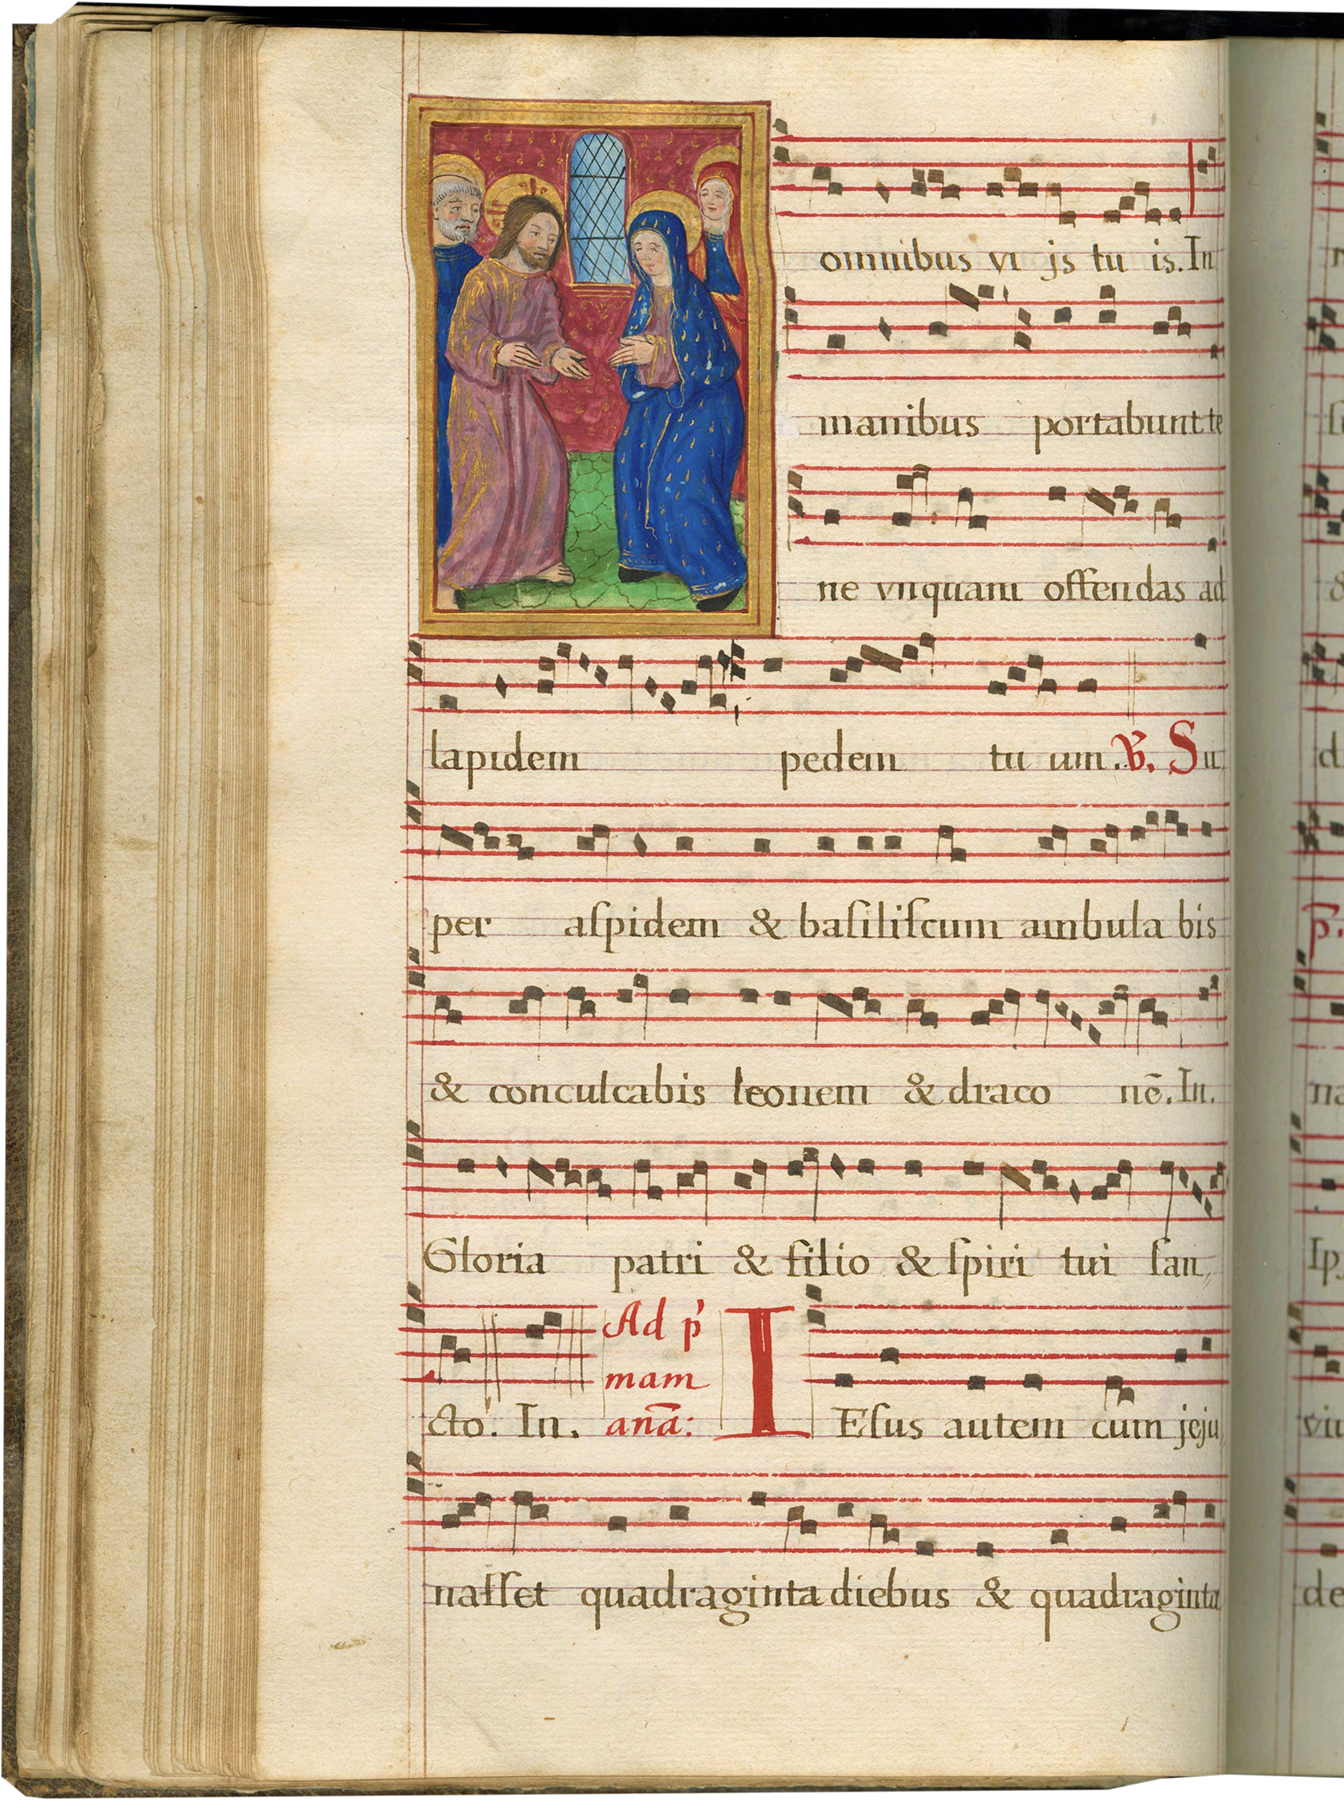 omnibus vi js tu is. In
manibus portabunt te
ne vnquam offendas ad
lapidem pedem tu um. ℣. Su
per aſpidem & baſiliſcum ambula bis
& conculcabis leonem & draco nē. In.
Gloria patri & filio & ſpiri tui ſan,
cto. In. Ad p̄ mam anā: I Eſus autem cum jeju,
naſſet quadraginta diebus & quadraginta